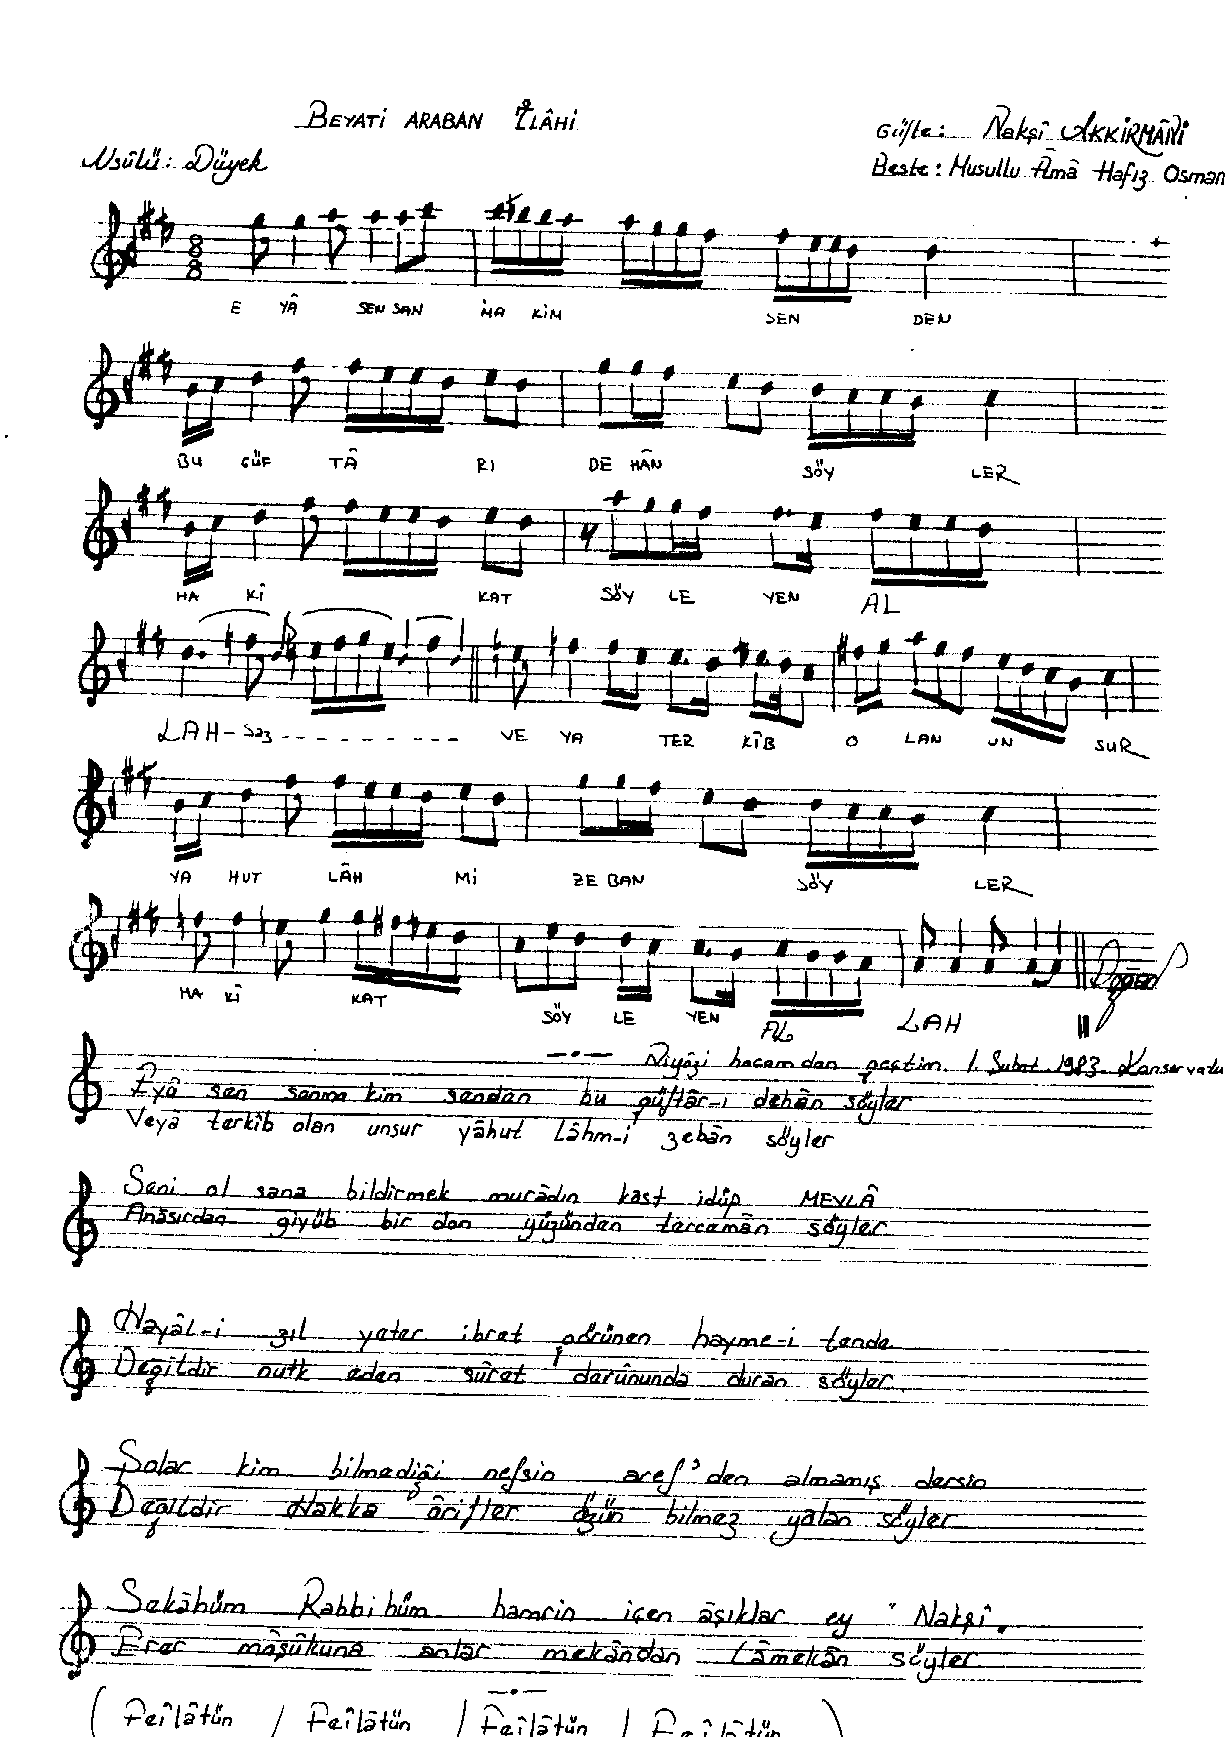 BEYATİ ARABAN İLÂHİ
Güfte: Nakşî AKKİRMÂNİ
Usûlü: Düyek
Beste: Musullu Âmâ Hafız Osman
8 8
E YÂ SEN SAN MA KİM SEN DEN
BU GÜF TÂ RI DE HÂN SÖY LER
HA Kİ KAT SÖY LE YEN AL
LAH - saz - - - - - - - - VE YA TER KÎB O LAN UN SUR
YA HUT LÂH Mİ ZE BAN SÖY LER
HA KÎ KAT SÖY LE YEN AL LAH
Niyâzi hocamdan geçtim. 1. Şubat. 1983.
Eyâ sen sanma kim senden bu güftâr-ı dehân söyler
Veyâ terkîb olan unsur yâhut lâhm-i zebân söyler
Seni ol sana bildirmek murâdın kast idüp MEVLÂ
Anâsırdan giyüb bir don yüzünden tercemân söyler
Hayâl-i zıl yeter ibret görünen hayme-i tende
Değildir nutk eden sûret derûnunda duran söyler
Şolar kim bilmediği nefsin aref'den almamış dersin
Değildir Hakka ârifler özün bilmez yalan söyler
Sekâhüm Rabbihüm hamrin içen âşıklar ey "Nakşî.
Erer mâşûkuna anlar mekândan Lâmekân söyler
( Feilâtün / Feilâtün / Feilâtün / Feilâtün )